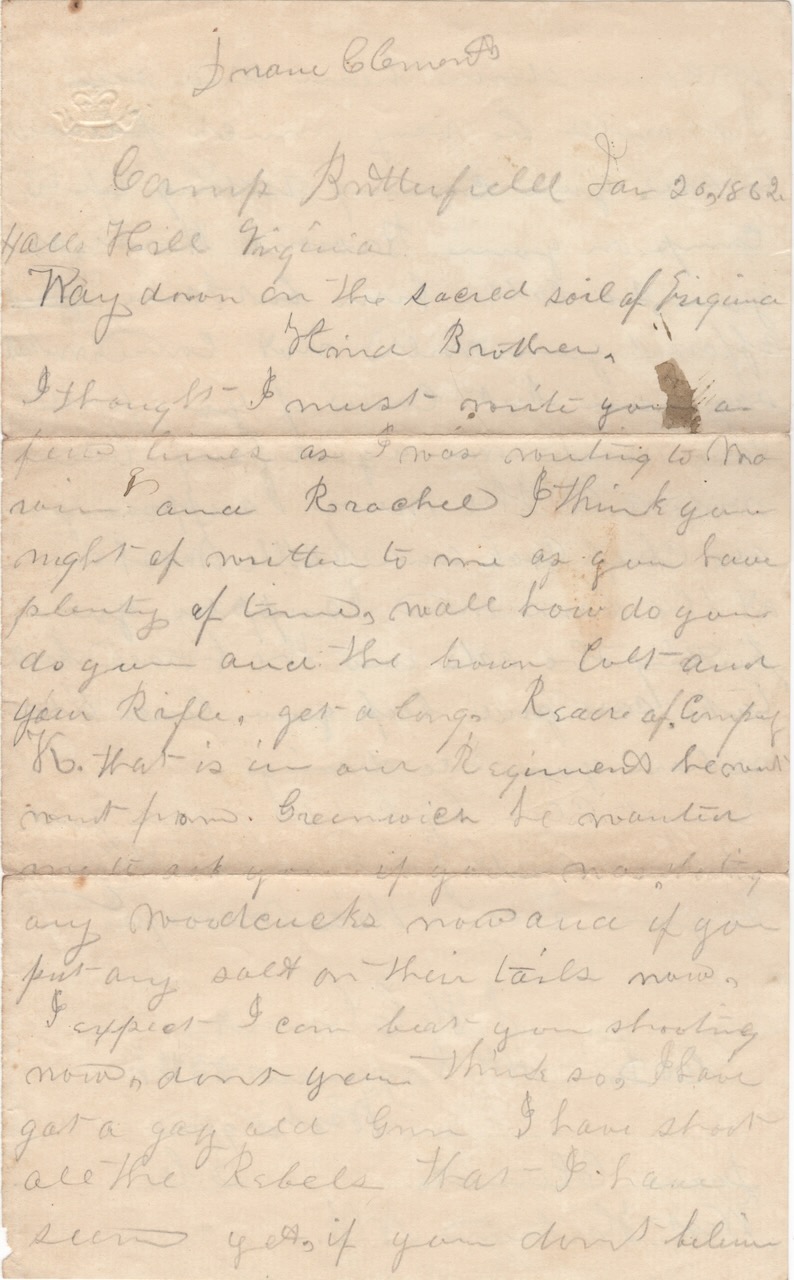 Clement
Camp Butterfield Jan 20, 1862
Halls Hill Virginia
Way down on the sacred soil of Virginia
Kind Brother,
I thought I must write you a
few lines as I was writing to Ma
and Rrachel I think you
might of written to me as you have
plenty of time, wall how do you
do you and the brown Colt and
your Rifle. get a long, of Compny
K. that is in our Regiment he went
wint from. Greenwich he wanted
me to ask you if you was
any Woodcucks now and if you
put any salt on their tails now,
I expect I can beat you shooting
now, dont you think so, I have
got a gay old Gun I have shoot
all the Rebels that I have
seen yet, if you dont believe